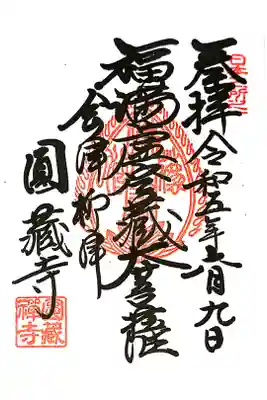 奉拝 令和五年六月九日
福満虚空蔵大菩薩
会津柳津
圓藏寺
圓藏禅寺